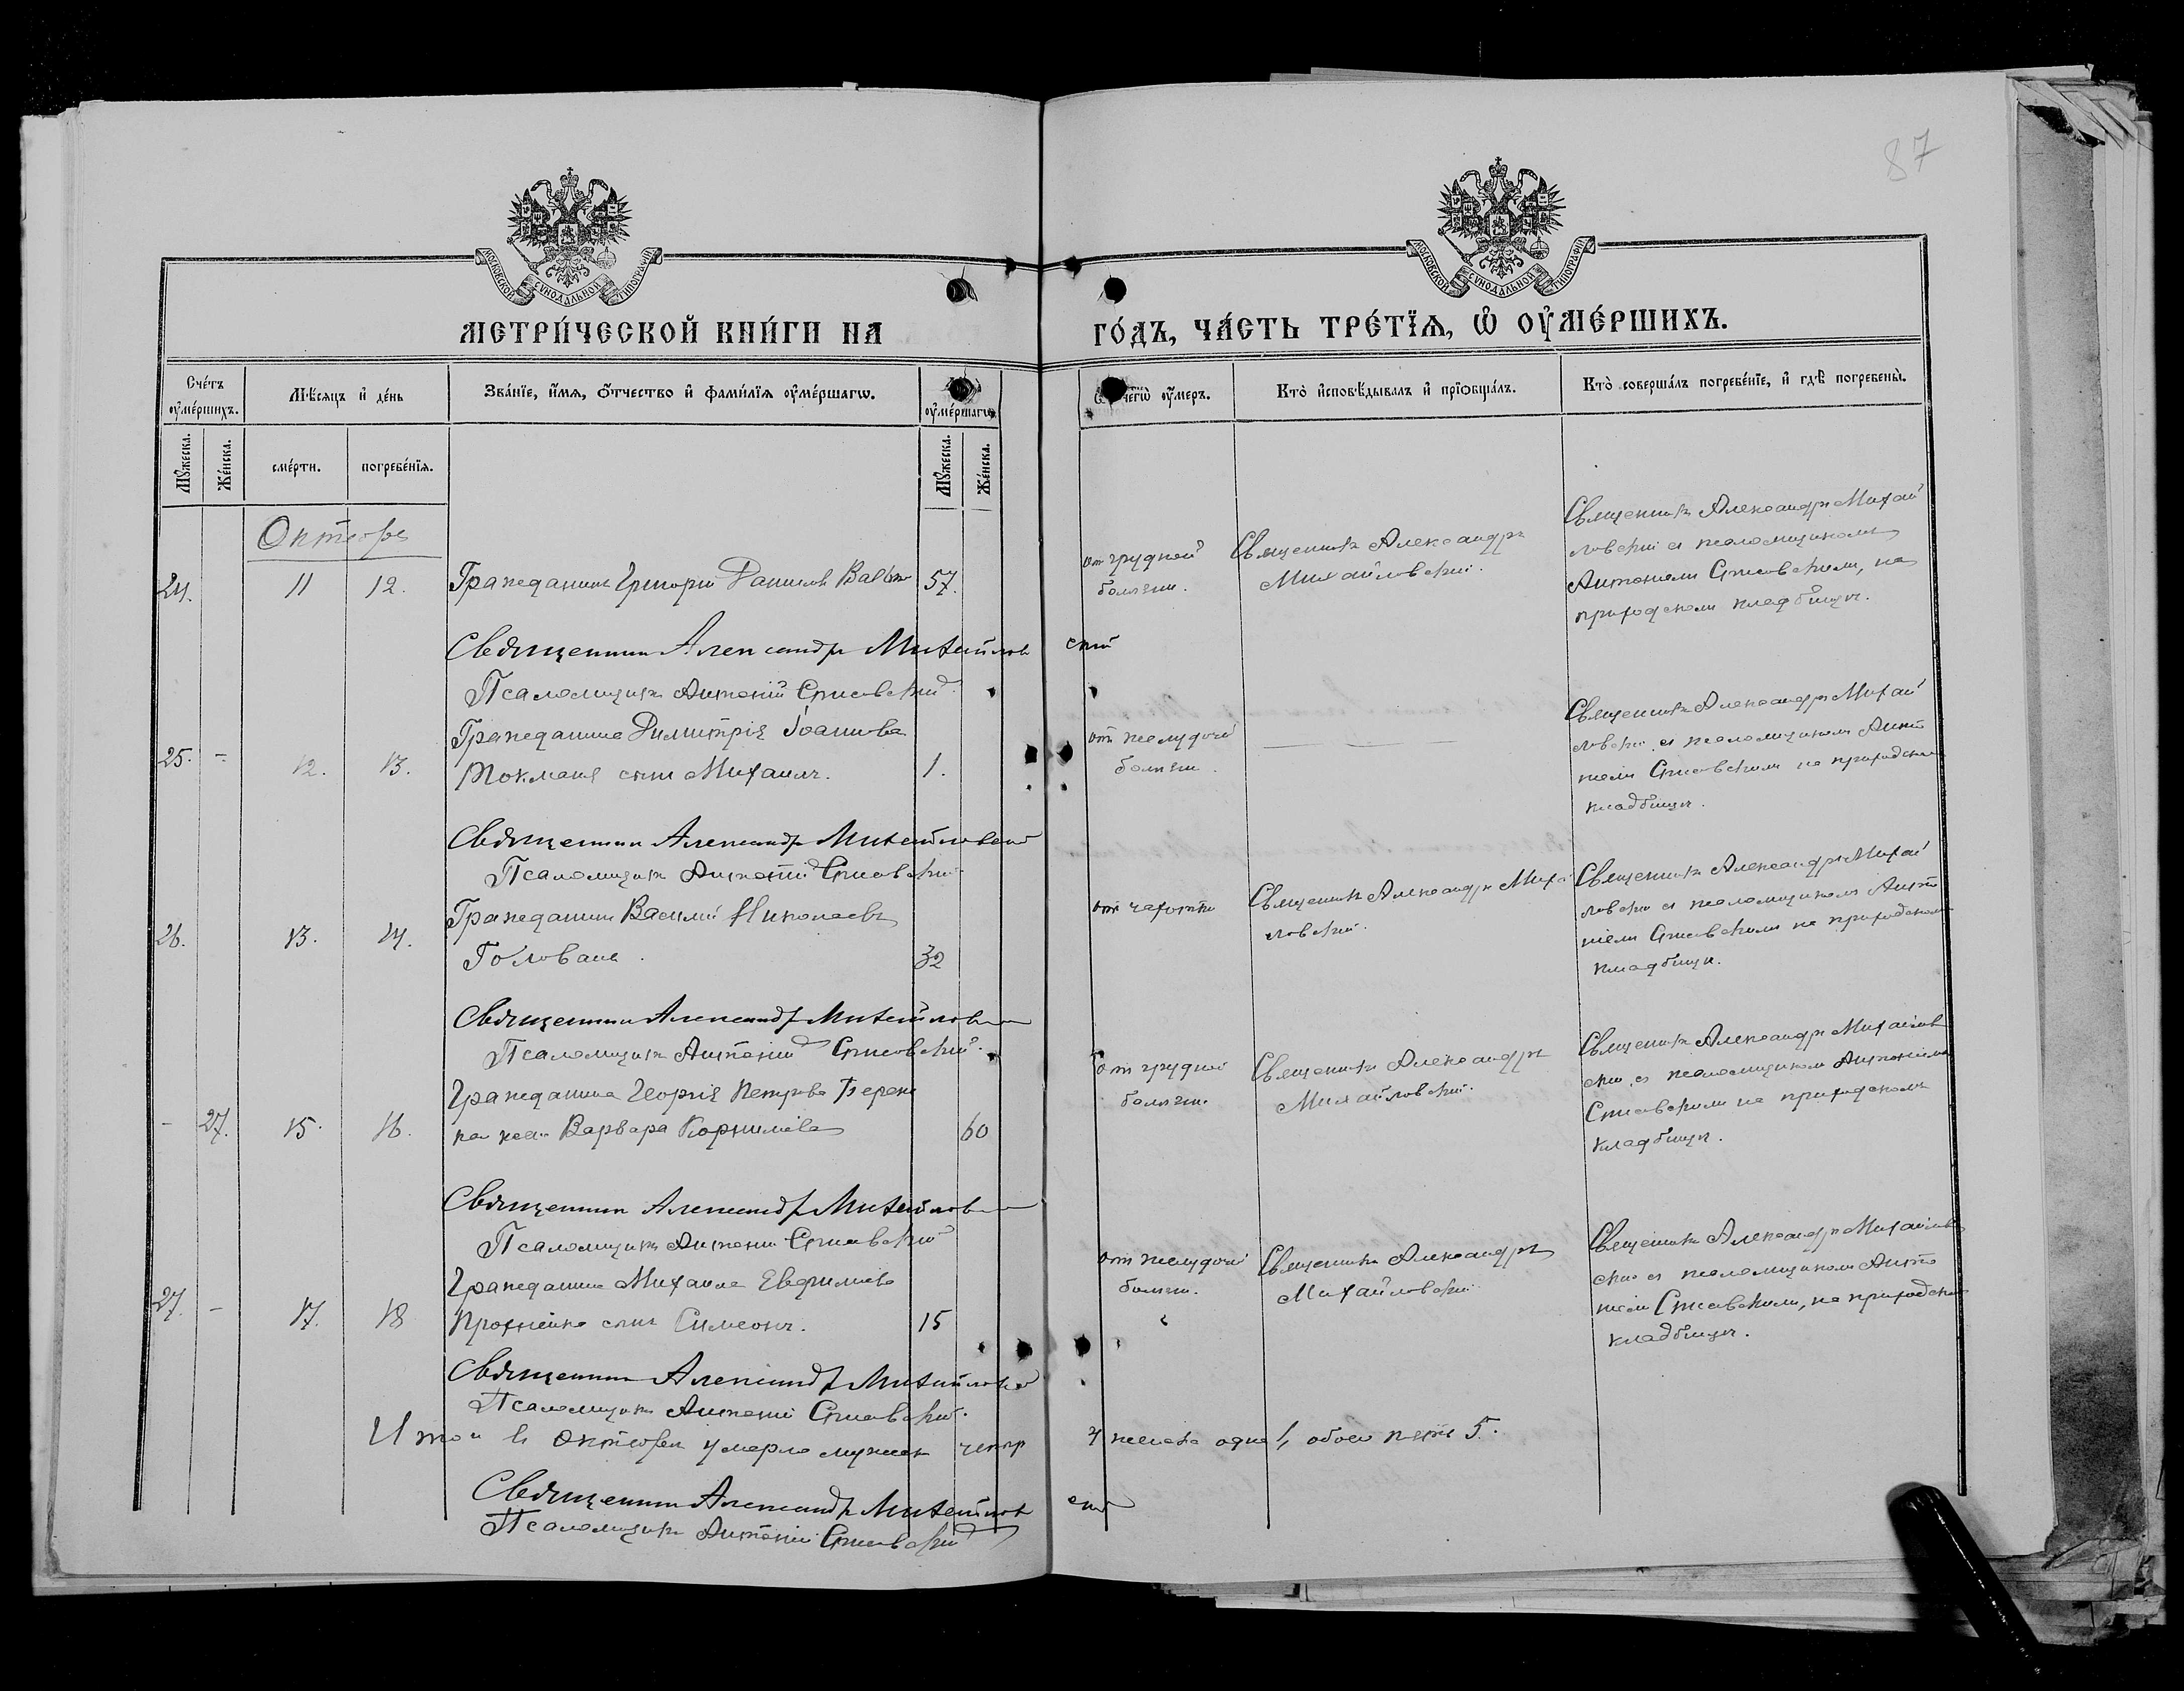 87
МОСКОВСКОЙ СѴНОДАЛЬНОЙ ТИПОГРАФІИ
МОСКОВСКОЙ СѴНОДАЛЬНОЙ ТИПОГРАФІИ
МЕТРИ́ЧЕСКОЙ КНИ́ГИ НА
ГО́ДЪ, ЧА́СТЬ ТРЕ́ТЇѦ, Ѽ ОУ҆МЕ́РШИХЪ.
Сче́тъ оу҆ме́ршихъ.
Мѣ́сяцъ и҆ де́нь
Зва́нїе, и҆́мѧ, ѻ҆́тчество и҆ фами́лїѧ оу҆ме́ршагѡ.
оу҆ме́ршагѡ.
чегѡ̀ оу҆́меръ.
Кто̀ и҆сповѣ́дывалъ и҆ прїѡбща́лъ.
Кто̀ соверша́лъ погребе́нїе, и҆ гдѣ̀ погребены̀.
Мꙋ́жеска.
Же́нска.
сме́рти.
погребе́нїѧ.
Мꙋ́жеска.
Же́нска.
Октябрь
24.
11
12.
Гражданинъ Григорій Даниловъ
57.
отъ грудной
болѣзни.
Священникъ Александръ
Михайловскій.
Священникъ Александръ Михай
ловскій съ псаломщикомъ
Антоніемъ, на
приходскомъ кладбищѣ.
Священникъ Александръ Михайлов
скій
Псаломщикъ Антоній
25. -
12.
13.
Гражданина Димитрія Іоаннова
Токманя сынъ Михаилъ.
1.
отъ желудочной
болѣзни.
Священникъ Александръ Михай
ловскій съ псаломщикомъ Анто
ніемъ на приходскомъ
кладбищѣ.
Священникъ Александръ Михайловскій
Псаломщикъ Антоній
26.
13.
14.
Гражданинъ Василій Николаевъ
Головань.
32
отъ чахотки
Священникъ Александръ Михай
ловскій.
Священникъ Александръ Михай
ловскій съ псаломщикомъ Анто
ніемъ на приходскомъ
кладбищѣ.
Священникъ Александръ Михайловскій
Псаломщикъ Антоній
-
27.
15.
16.
Гражданина Георгія Петрова
жена Варвара Корниліева
60
Отъ грудной
болѣзни.
Священникъ Александръ
Михайловскій.
Священникъ Александръ Михайлов
скій съ псаломщикомъ Антоніемъ
на приходскомъ
кладбищѣ.
Священникъ Александръ Михайловскій
Псаломщикъ Антоній
27.
-
17.
18
Гражданина Михаила Евфиміева
сынъ Симеонъ.
15
отъ желудочной
болѣзни.
Священникъ Александръ
Михайловскій
Священникъ Александръ Михайлов
скій съ псаломщикомъ Анто
ніемъ, на приходскомъ
кладбищѣ.
Священникъ Александръ Михайловскій
Псаломщикъ Антоній
Итого въ Октябрѣ умерло мужеск четыр
4 женска одна 1, обоего пола 5.
Священникъ Александръ Михайлов
скій
Псаломщикъ Антоній